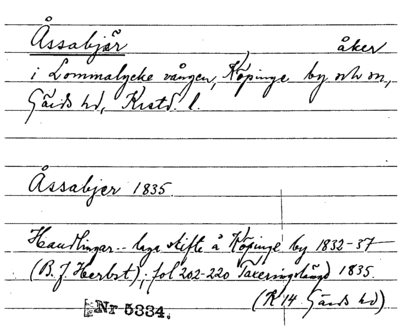 Åssabjär åker
i Lommalycke vången, Köpinge by och sn,
Gärds hd, Krstd. l.
Åssabjer 1835.
Handlingar .. laga skifte å Köpinge by 1832-37
(B. J. Herbst); fol 202-220 Taxeringslängd 1835.
(R 14 Gärds hd)
Nr 5334.